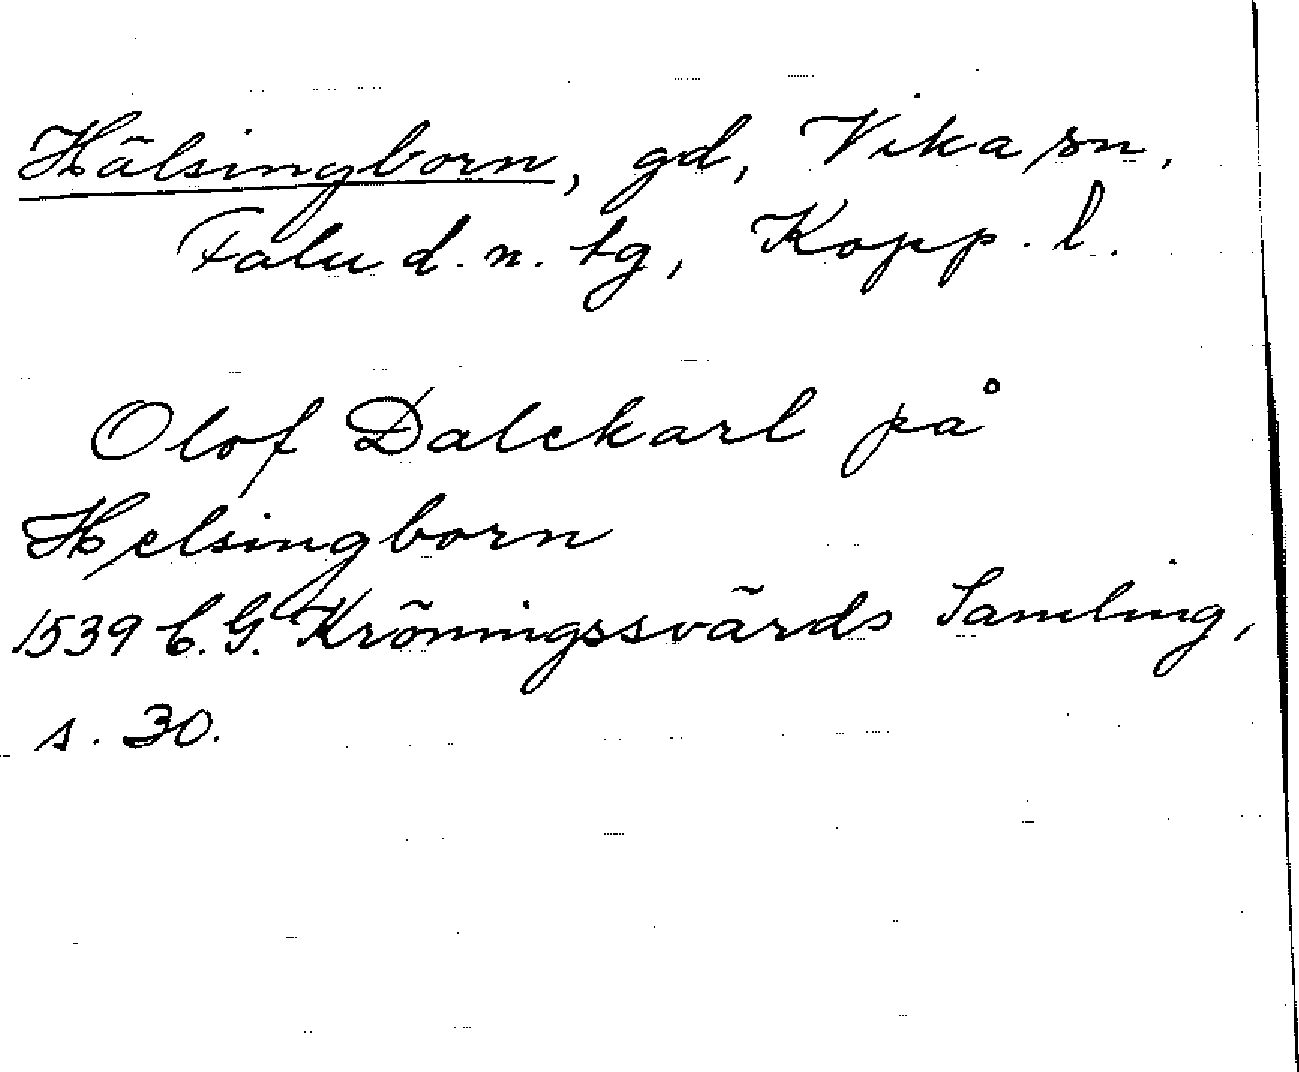 Hälsingborn, gd, Vika sn,
Falu d. n. tg, Kopp. l.
Olof Dalekarl på
Helsingborn
1539 C. G. Kröningssvärds Samling,
s. 30.